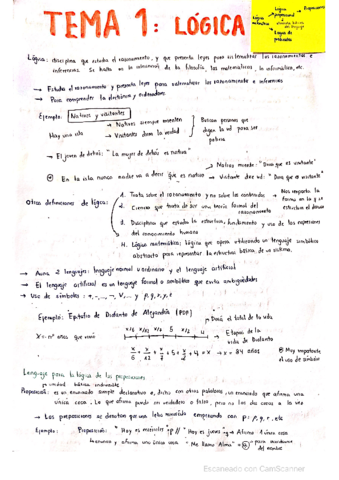 TEMA 1: LÓGICA
Lógica matemática
Lógica proposicional → Proposiciones
Lógica de predicados
Lógica: disciplina que estudia el razonamiento, y que presenta leyes para sistematizar los razonamientos e
inferencias. Se basa en la de la filosofía, las matemáticas, la informática, etc.
→ Estudia el razonamiento y presenta leyes para sistematizar los razonamiento e inferencias
→ Para comprender la electrónica y ordenadores
Ejemplo: Nativos y visitantes
Hay una isla → Nativos siempre mienten
→ Visitantes dicen la verdad
Buscan personas que
digan la vdd para ser
→ El joven de detrás: "La mujer de detrás es nativa"
→ Nativos miente: "Dirán que es visitante"
* En la isla nunca nadie va a decir que es nativo → Visitante dice vdd: "Dirá que es visitante"
Otras definiciones de lógica:
1. Trata sobre el razonamiento y no sobre los contenidos → Nos importa la
forma en la q se
estructura el
2. Ciencia que trata de ser una teoría formal del
razonamiento
3. Disciplina que estudia la estructura, fundamento y uso de las expresiones
del conocimiento humano
4. Lógica matemática; Lógica que opera utilizando un lenguaje simbólico
abstracto para representar la estructura básica de un sistema.
→ Aúna 2 lenguajes: lenguaje normal u ordinario y el lenguaje artificial
→ El lenguaje artificial es un lenguaje formal o simbólico que evita ambigüedades
→ Uso de símbolos: y p, q, r, s, t
Ejemplo: Epitafio de Diofanto de Alejandría (PDF)
→ Dará el total de la vida
X = nº años que vivió
x/6 x/12 x/7 5 x/2 4
→ Etapas de la
vida de Diofanto
x/6 + x/12 + x/7 + 5 + x/2 + 4 = x → x = 84 años
* Muy importante
el uso de símbolos
Lenguaje para la lógica de las proposiciones
→ unidad básica indivisible
Proposición: es un enunciado simple declarativo o, dicho con otras palabras, un enunciado que afirma una
única cosa. Lo que afirma puede ser verdadero o falso, pero no las dos cosas a la vez
→ Las proposiciones se denotan con una letra minúscula empezando con p: p, q, r, etc
Ejemplo: Proposición: "Hoy es miércoles" = p // "Hoy es jueves" = q → Afirma 1 única cosa
"Me llamo Alma" = a → para acordarme
del nombre